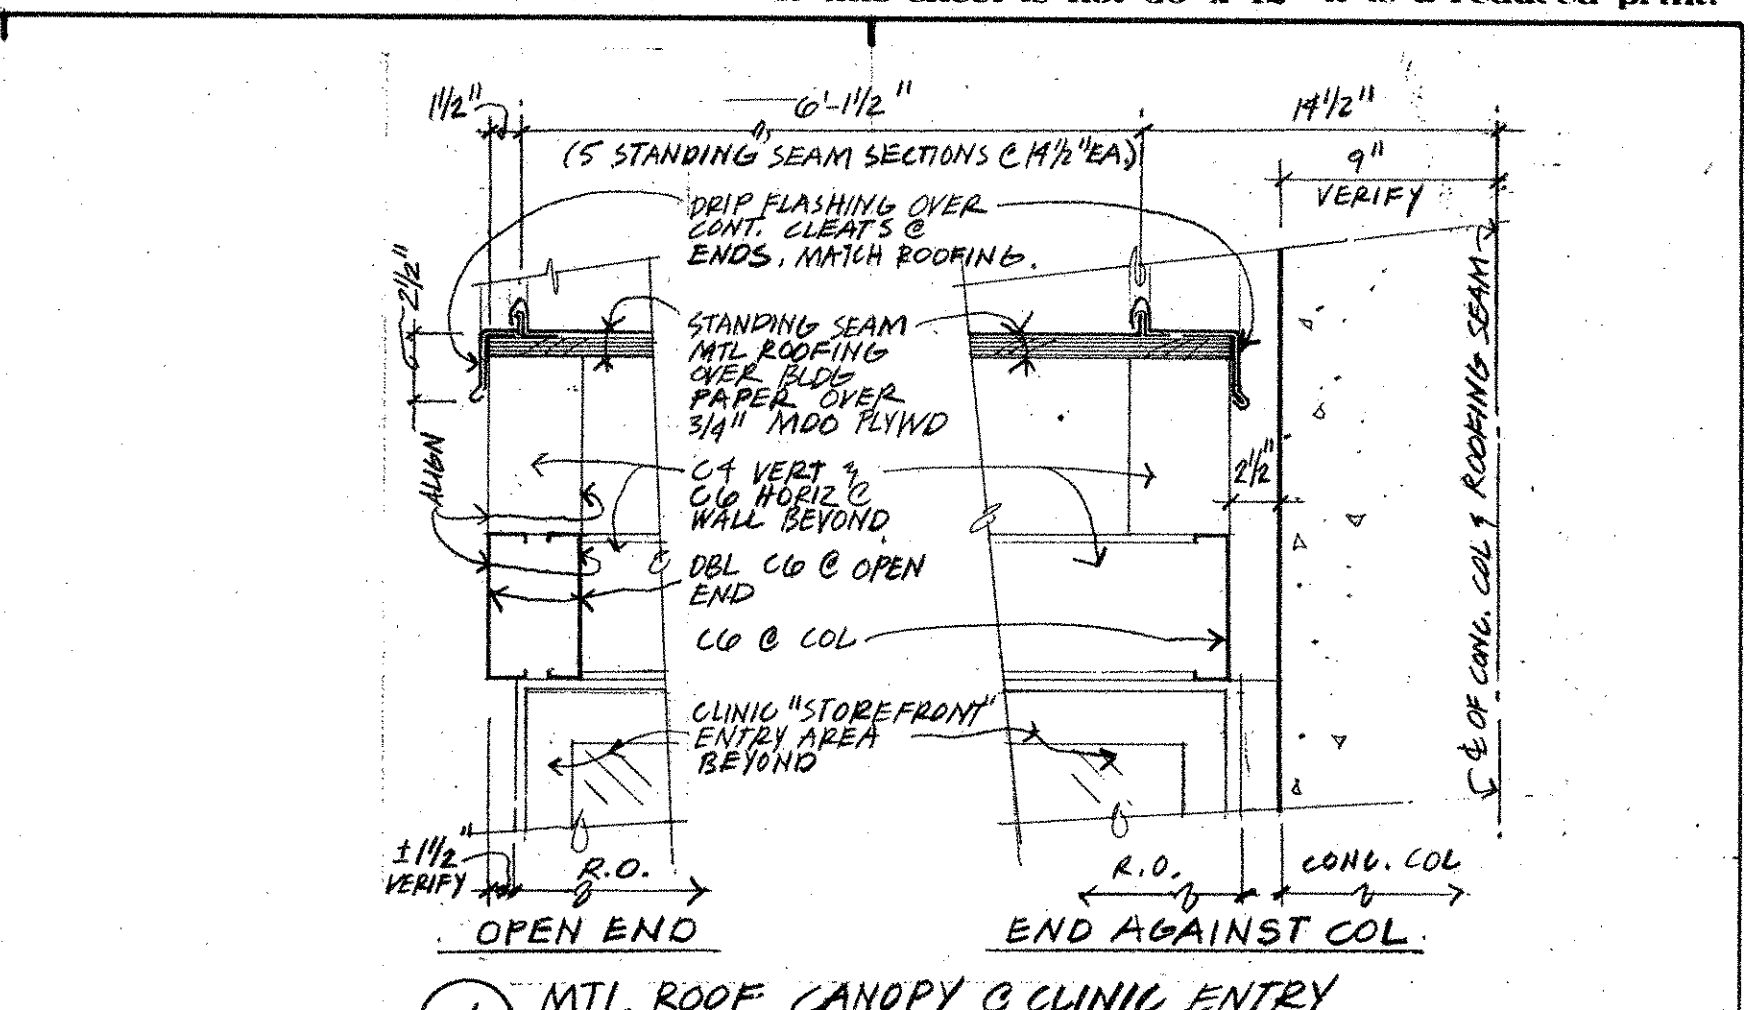 1 1/2"
6'-1 1/2"
14 1/2"
(5 STANDING SEAM SECTIONS @ 14 1/2" EA.)
9"
VERIFY
DRIP FLASHING OVER
CONT. CLEATS @
ENDS. MATCH ROOFING.
2 1/2"
STANDING SEAM
MTL ROOFING
OVER BLDG
PAPER OVER
3/4" MDO PLYWD
ALIGN
C4 VERT &
C6 HORIZ @
WALL BEYOND
2 1/2"
DBL C6 @ OPEN
END
C6 @ COL
℄ OF CONC. COL & ROOFING SEAM
CLINIC "STOREFRONT"
ENTRY AREA
BEYOND
±1 1/2"
VERIFY
R.O.
R.O.
CONC. COL
OPEN END
END AGAINST COL.
MTL ROOF CANOPY @ CLINIC ENTRY